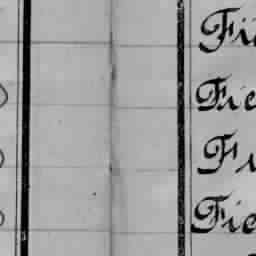 Fie
Fie
Fi
Fie